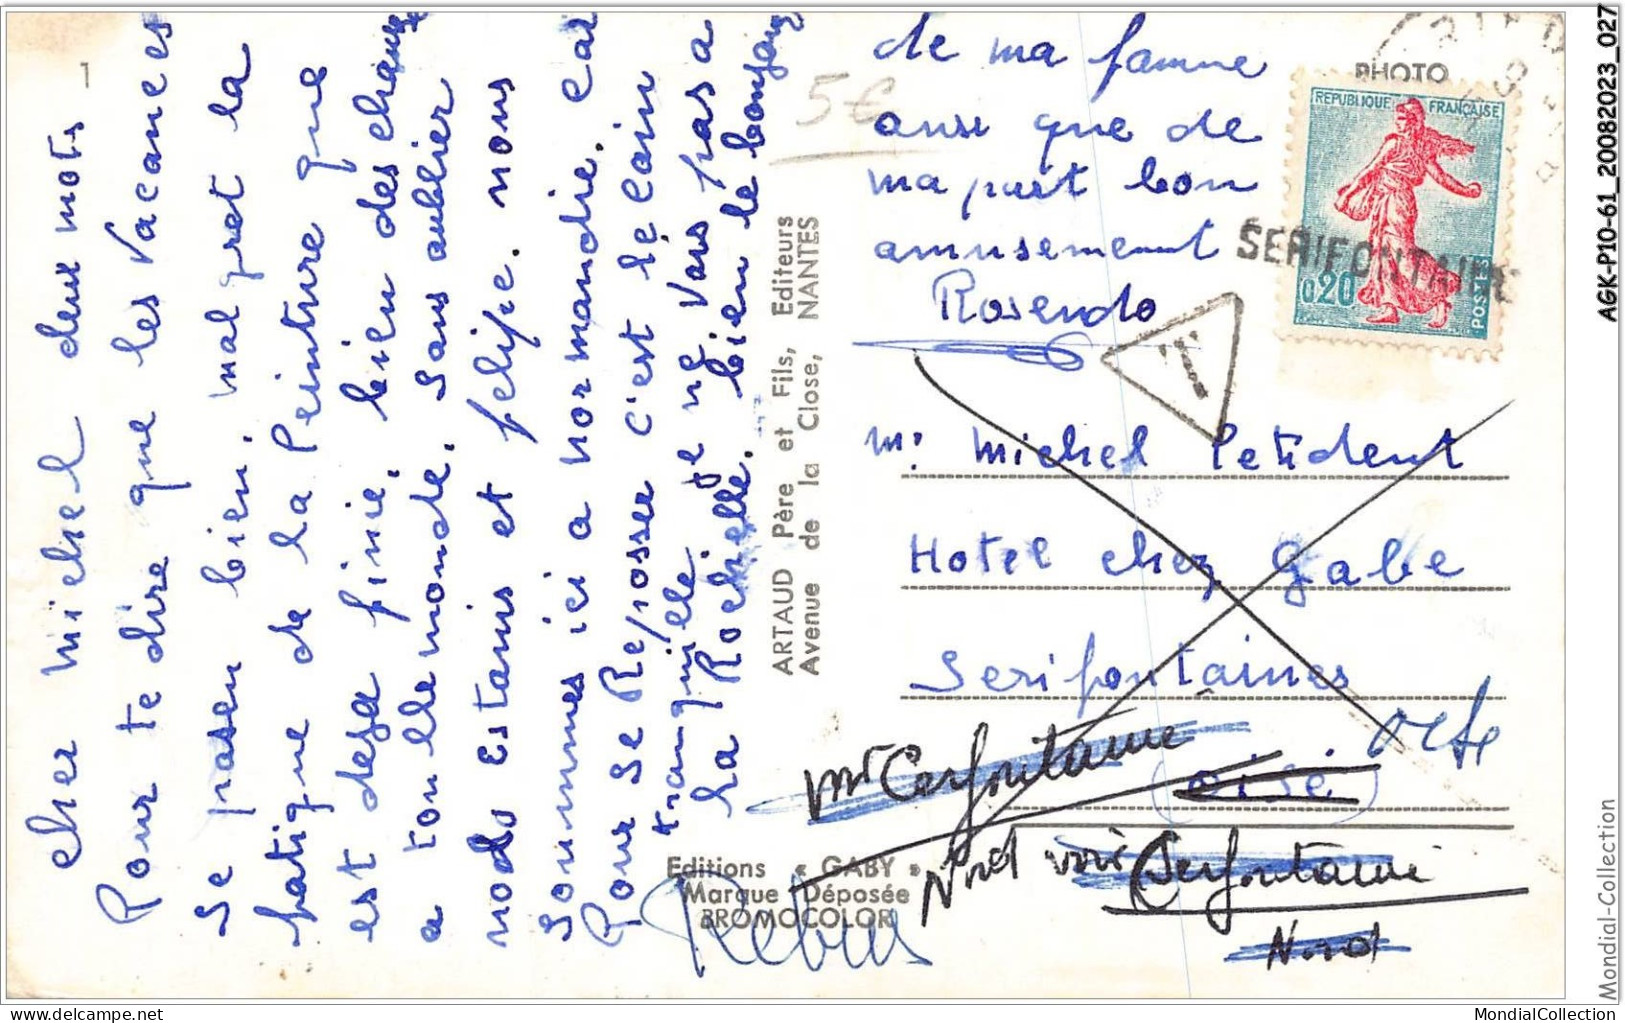 1
cher michel deux mots
Pour te dire que les Vacances
Se pasen bien, malgret la
fatigue de la Peinture que
est deja finie, bien des chause
a tou lle monde, sans oublier
nodo Estanis et felipe. nous
Sonnmes ici a normandie. ca
Pour Se Reposser c'est le Coin
tranquille je ne vais pas a
La Rochelle. bien le bonjour
de ma famme
ausi que de
ma part bon
amusement
Rosendo
5€
PHOTO
REPUBLIQUE FRANÇAISE
0,20
POSTES
SERIFONTAINE
T
ARTAUD Père et Fils, Editeurs
Avenue de la Close, NANTES
Mr Michel Petident
Hotel chez Gabe
Serifontaines
(oise)
Cerfontaine
Nord voir Cerfontaine
Nord
Editions « GABY »
Marque Déposée
BROMOCOLOR
Rebus
AGK-P10-61_20082023_027
Mondial-Collection
MondialCollection